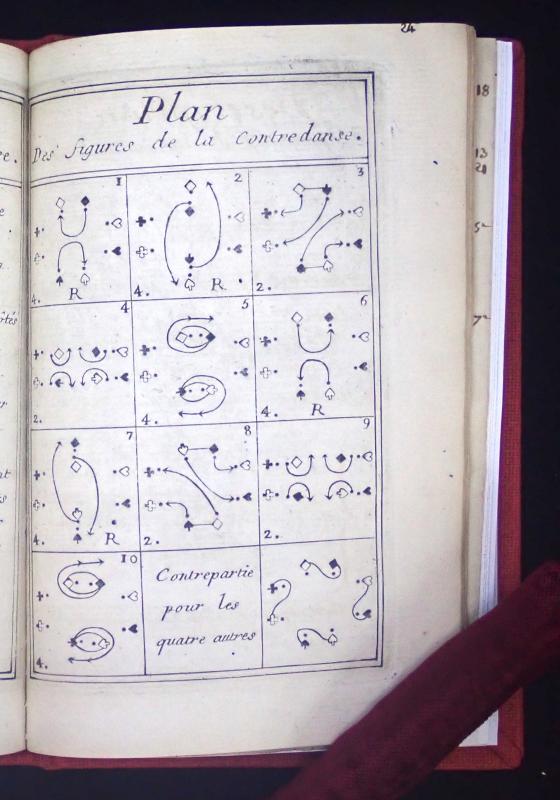 24
Plan
Des figures de la Contredanse.
1
4. R
2
4. R
3
2.
4
2.
5
4.
6
4. R
7
4. R
8
2.
9
2.
10
4.
Contrepartie
pour les
quatre autres
18
13
21